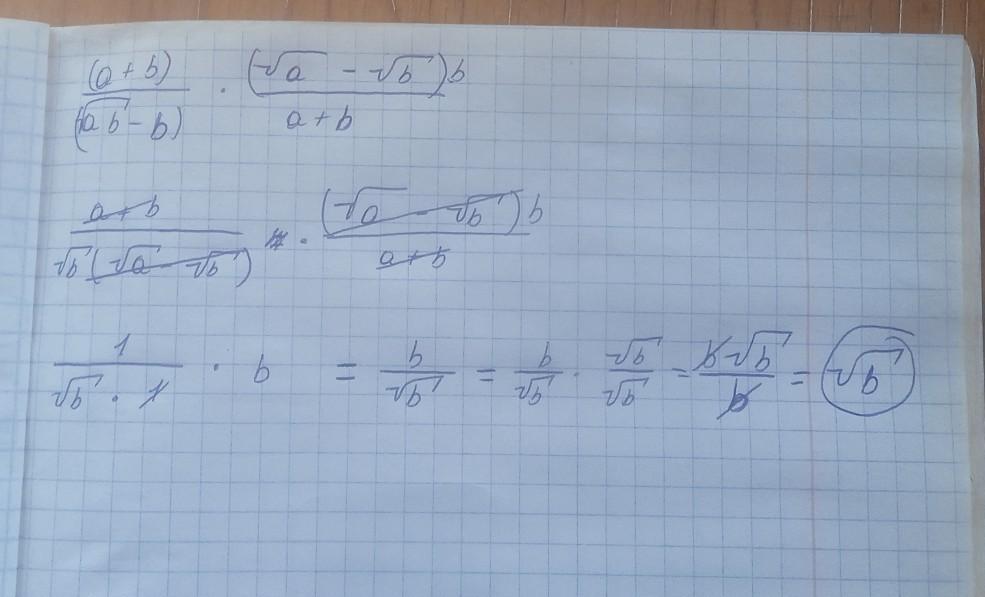 (a + b) / (√ab - b) · (√a - √b)b / a + b
a + b / √b(√a - √b) · (√a - √b)b / a + b
1 / √b · 1 · b = b / √b = b / √b · √b / √b = b√b / b = √b